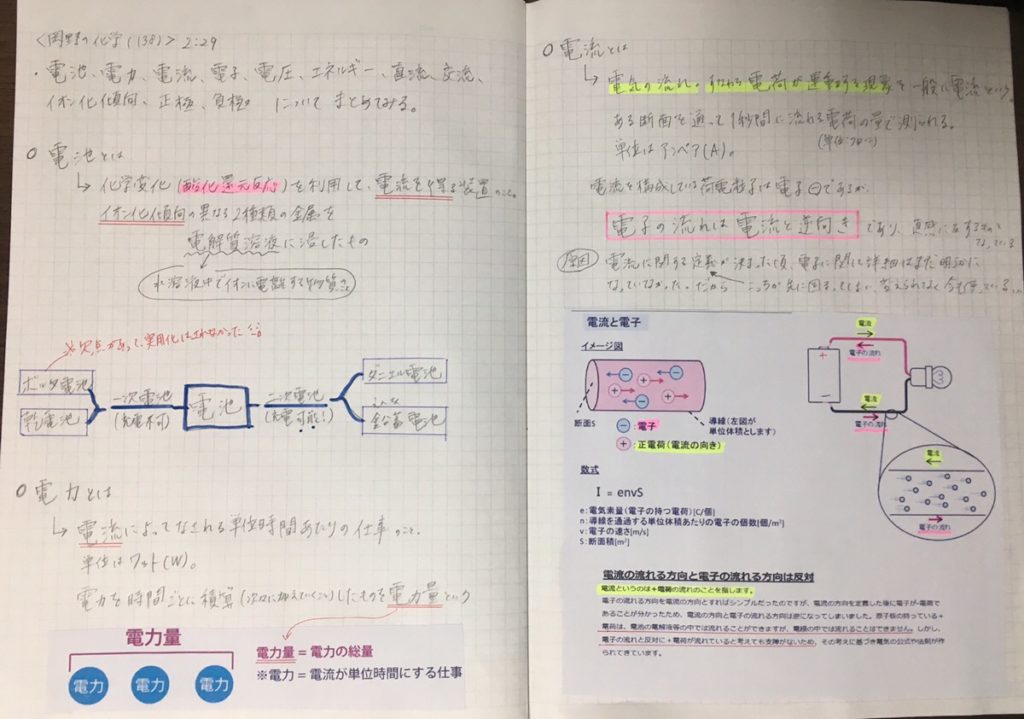 <岡野の化学(138)> 2:29
・電池、電力、電流、電子、電圧、エネルギー、直流、交流、
イオン化傾向、正極、負極 についてまとめてみる。
○ 電池とは
↳ 化学変化(酸化還元反応)を利用して、電流を得る装置のこと。
イオン化傾向の異なる2種類の金属を
電解質溶液に浸したもの
水溶液中でイオンに電離する物質のこと
※欠点があって、実用化はされなかった
ボルタ電池
乾電池
一次電池
(充電不可)
電池
二次電池
(充電可能!)
ダニエル電池
鉛蓄電池
○ 電力とは
↳ 電流によってなされる単位時間あたりの仕事のこと。
単位はワット(W)。
電力を時間ごとに積算(次々に加えていくこと)したものを電力量という
電力量
電力 電力 電力
電力量 = 電力の総量
※電力 = 電流が単位時間にする仕事
○ 電流とは
↳ 電気の流れ。すなわち電荷が運動する現象を一般に電流という。
ある断面を通って1秒間に流れる電荷の量で測られる。
(単位:クーロン)
単位はアンペア(A)。
電流を構成している荷電粒子は電子⊖であるが、
電子の流れは電流と逆向き であり、直感に反するものとなっている
原因 電流に関する定義が決まった頃、電子に関して詳細はまだ明らかに
なっていなかった。だから こっちが先に回ってしまい、変えられなく今も使っている
電流と電子
イメージ図
断面S
導線(左図が
単位体積とします)
⊖:電子
⊕:正電荷(電流の向き)
数式
I = envS
e:電気素量(電子の持つ電荷)[C/個]
n:導線を通過する単位体積あたりの電子の個数[個/m³]
v:電子の速さ[m/s]
S:断面積[m²]
電流
電子の流れ
電流
電子の流れ
電流
電子の流れ
電流の流れる方向と電子の流れる方向は反対
電流というのは+電荷の流れのことを指します。
電子の流れる方向を電流の方向とすればシンプルだったのですが、電流の方向を定義した後に電子が-電荷で
あることが分かったため、電流の方向と電子の流れる方向は逆になってしまいました。原子核の持っている+
電荷は、電池の電解液等の中では流れることができますが、電線の中では流れることはできません。しかし、
電子の流れと反対に+電荷が流れていると考えても支障がないため、その考えに基づき電気の公式や法則が作
られてきています。